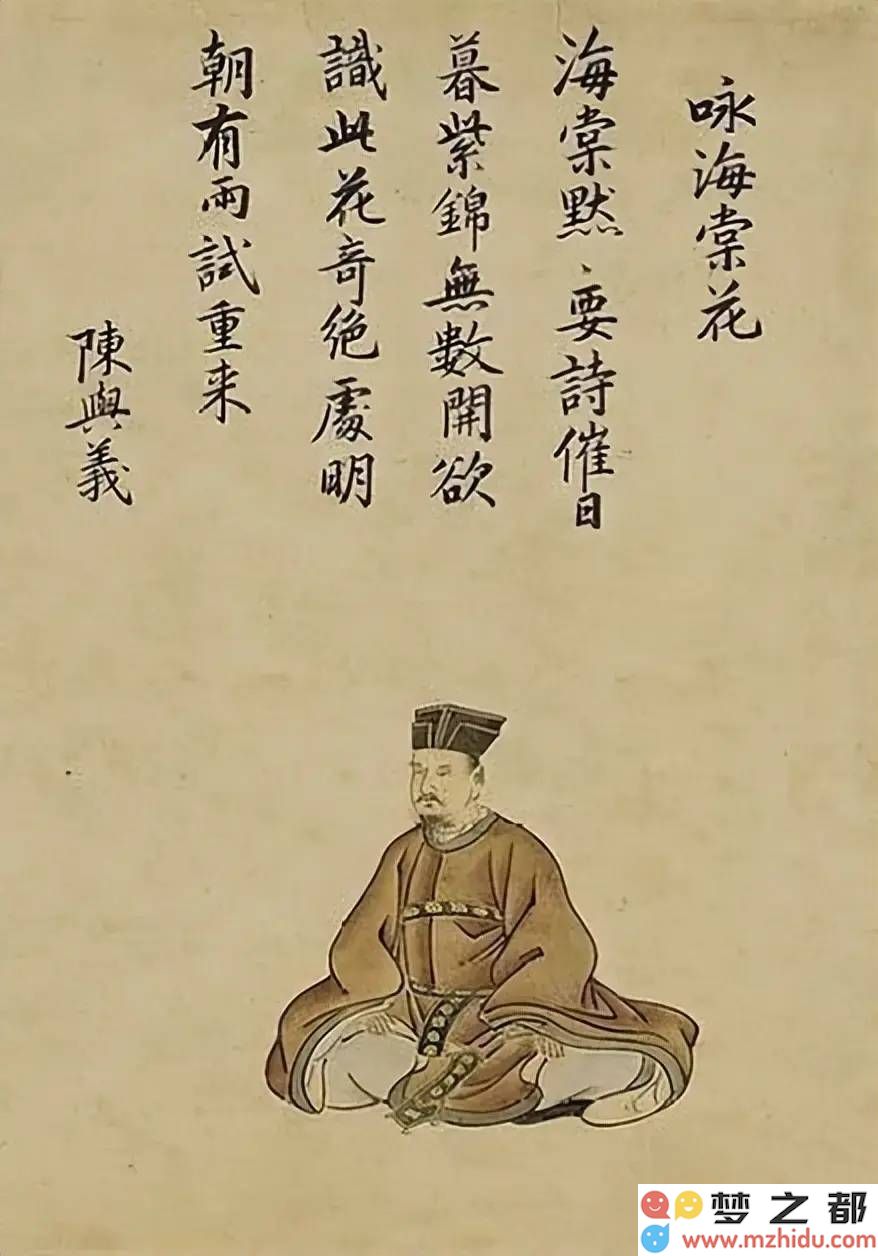 咏海棠花
海棠默、要詩催日
暮紫錦無數開欲
識此花奇絶處明
朝有雨試重来
陳與義
梦之都
www.mzhidu.com